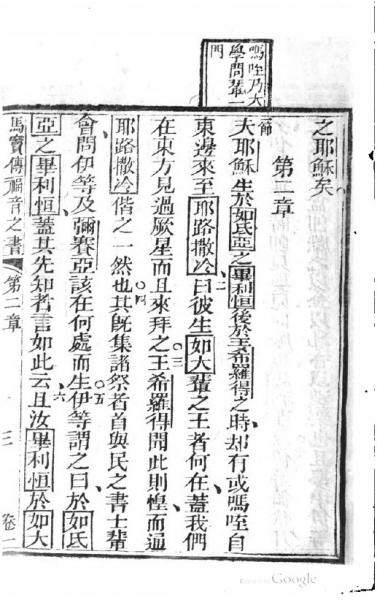 嗎咥乃大
學問輩一
門
之耶穌矣
第二章
一節
夫耶穌生於如氐亞之畢利恒後於王希羅得之時却有或嗎咥自
東邊來至耶路撒冷二曰彼生如大輩之王者何在蓋我們
在東方見過厥星而且來拜之三王希羅得聞此則惶而通
耶路撒冷偕之一然也四其旣集諸祭者首與民之書士輩
會問伊等及彌賽亞該在何處而生五伊等謂之曰於如氐
亞之畢利恒蓋其先知者言如此云六且汝畢利恒於如大
馬竇傳福音之書 第二章 三 卷一
Google